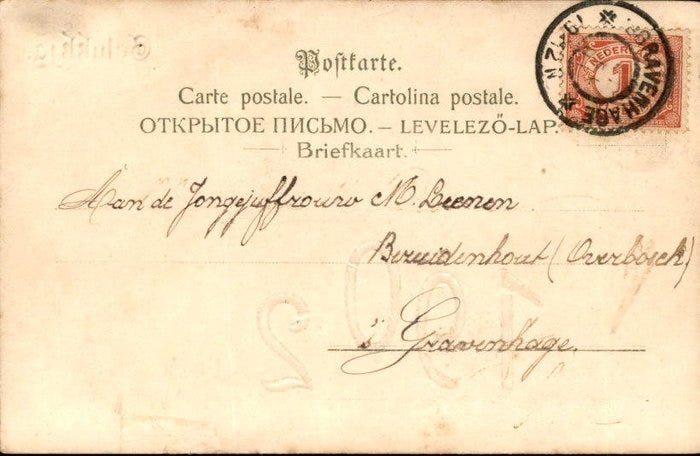 Postkarte.
Carte postale. — Cartolina postale.
ОТКРЫТОЕ ПИСЬМО. — LEVELEZŐ-LAP.
Briefkaart.
'S GRAVENHAGE
NEDERL
1
Aan de Jongejuffrouw M. Leenen
Bezuidenhout (Overbosch)
's Gravenhage.
1902